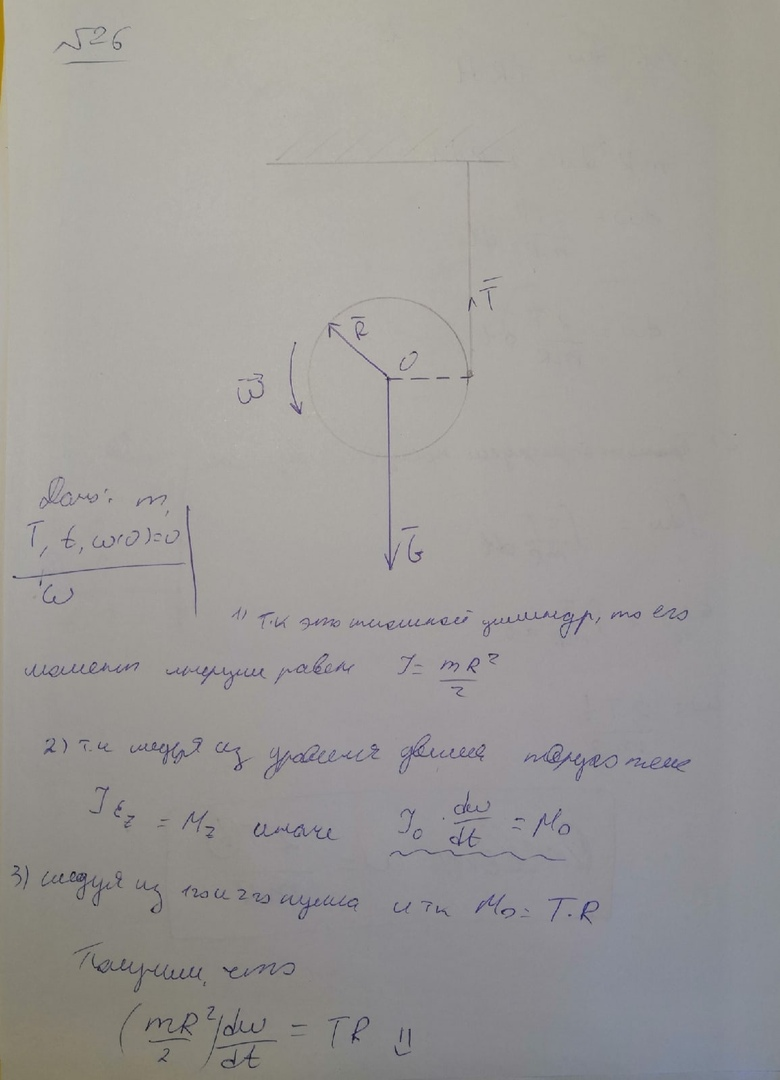 №26
T̄
R̄
O
ω̄
Ḡ
Дано: m,
T, t, ω(0)=0
ω
1) Т.к это сплошной цилиндр, то его
момент инерции равен J = mR²/2
2) т.к следуя из движения
Jε_z = M_z иначе J₀ · dω/dt = M₀
3) следуя из 1го и 2го пункта и тк M₀ = T·R
Получим, что
(mR²/2) dω/dt = TR